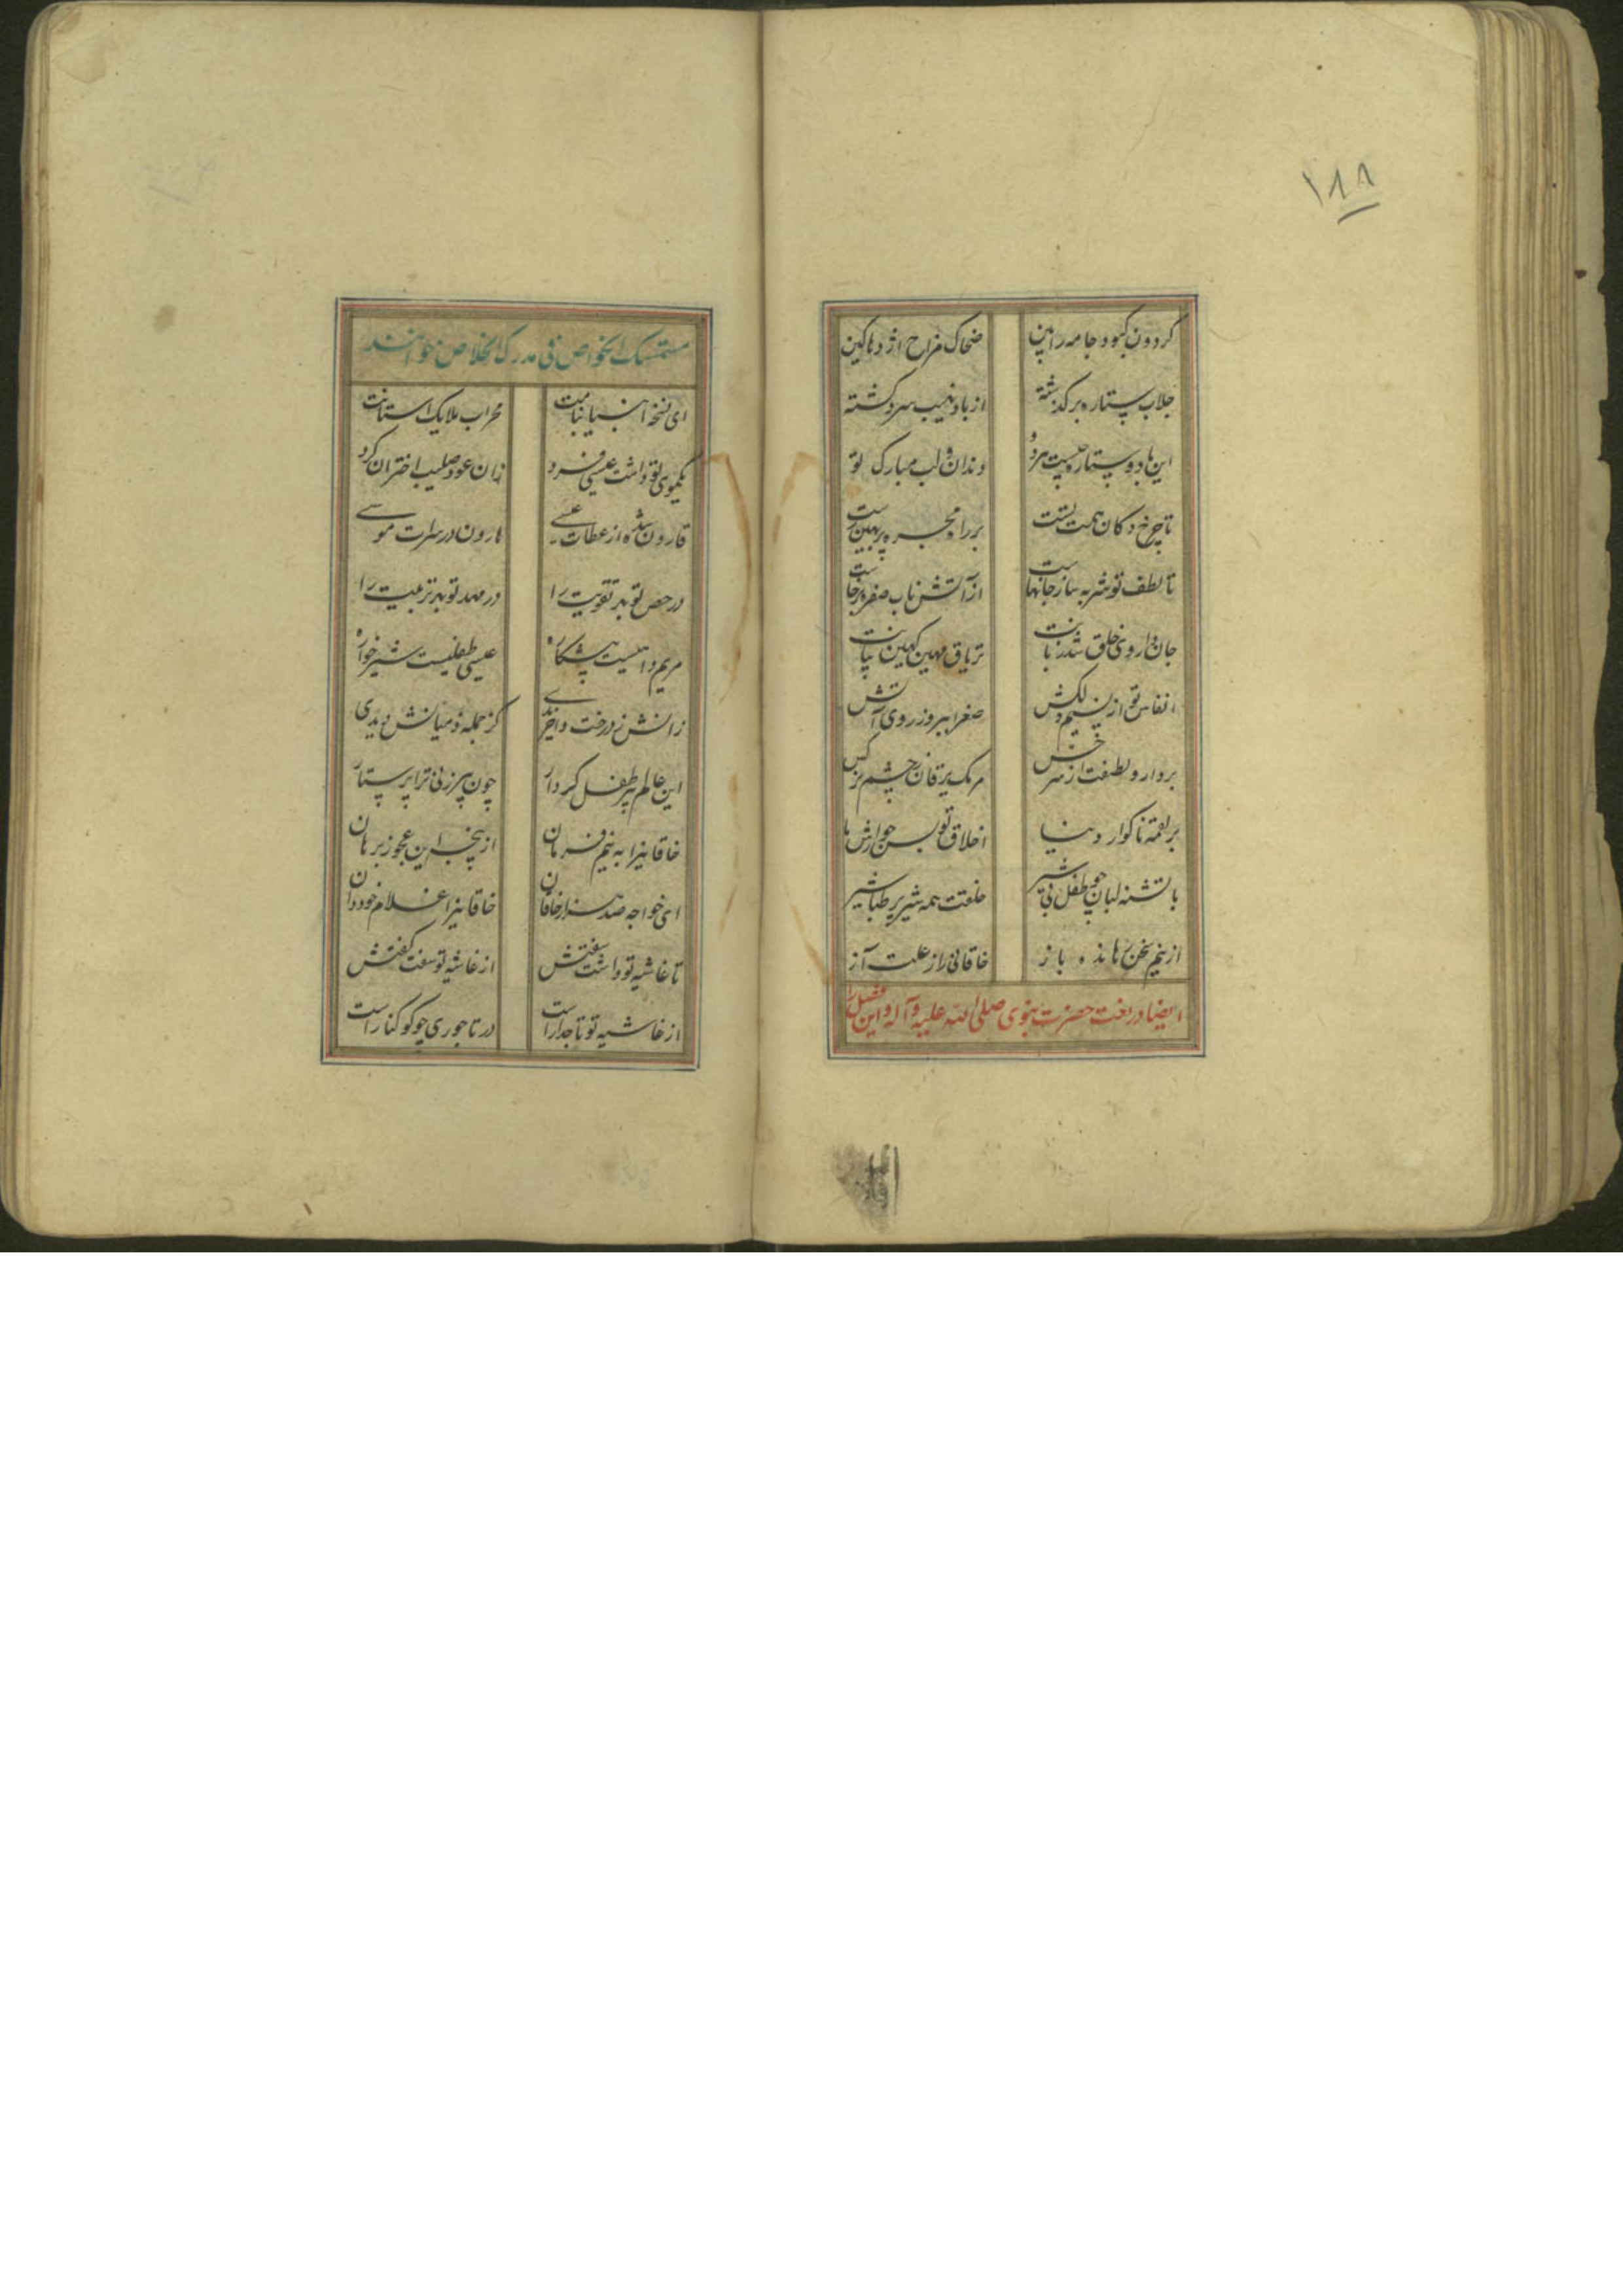 ۱۸۸
گردون کبود جامه را بین ضحاک مزاج اژدها کین
جلاب ستاره برگذشته از باد نهیب سرد گشته
این ماه دو ستاره چیست هر دو دندان و لب مبارک تو
تا چرخ دکان همت تست بر راه مجره
تا لطف تو شربه ساز جانهاست از آتش ناب صفر برخاست
جان داروی خلق شد زبانت تریاق مهین کهین بیانت
انفاس تو از نسیم دلکش صفرا ببرد ز روی آتش
بر دارو لطفت از سر خس مرگ یرقان ز چشم نرگس
بر لقمه ناگوار دنیا اخلاق تو بس جوارش ما
با تشنه لبان چو طفل بی شیر خلقت همه شیر بر طباشیر
از نیم سخن رهاند باز خاقانی را ز علت آز
ایضا در نعت حضرت نبوی صلی الله علیه و آله و این فصل را
مستمسک الخواص فی مدرک الخلاص خوانند
ای نسخه انبیا بیانت محراب ملایک استانت
یکموی تو داشت عیسی فرد زان عود صلیب اختران کرد
قارون شده از عطات عیسی هارون در سرات موسی
در حصن تو بهر تقویت را در مهد تو بهر تربیت را
مریم دائیست پیشکاره عیسی طفلیست شیرخواره
زانش ز درخت واخریدی کز جمله دمیانش دیدی
این عالم پیر طفل کردار چون پیرزنی ترا پرستار
خاقانیرا به نیم فرمان از پنجه این عجوز برهان
ای خواجه صد هزار خاقان خاقانیرا غلام خود دان
تا غاشیه تو داشت سفتش از غاشیه تو سفت گفتش
از غاشیه تو تاجدار است در تاجوری چو کوکنار است